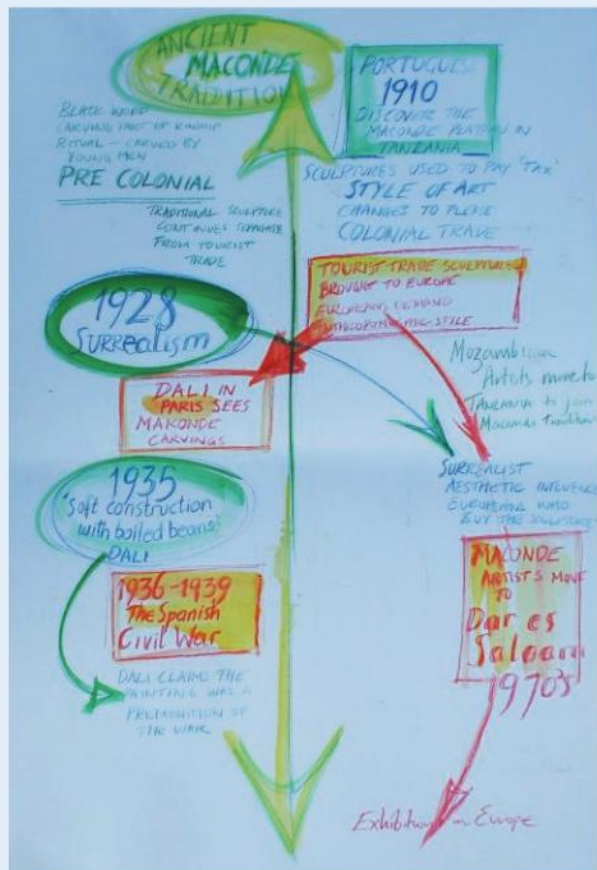 ANCIENT
MACONDE
TRADITION
BLACK WOOD
CARVING PART OF
RITUAL – CARVED BY
YOUNG MEN
PRE COLONIAL
PORTUGUESE
1910
DISCOVER THE
MACONDE PLATEAU IN
TANZANIA
SCULPTURES USED TO PAY 'TAX'
STYLE OF ART
CHANGES TO PLEASE
COLONIAL TRADE
TRADITIONAL SCULPTURE
CONTINUES SEPARATE
FROM TOURIST
TRADE
TOURIST TRADE SCULPTURES
BROUGHT TO EUROPE
EUROPEANS DEMAND
STYLE
1928
SURREALISM
DALI IN
PARIS SEES
MAKONDE
CARVINGS
Mozambican
Artists move to
TANZANIA to join
Maconde Tradition
SURREALIST
AESTHETIC INFLUENCE
EUROPEANS WHO
BUY THE SCULPTURE
1935
"Soft construction
with boiled beans"
DALI
1936-1939
The Spanish
Civil War
DALI CLAIMS THE
PAINTING WAS A
PREMONITION OF
THE WAR
MACONDE
ARTISTS MOVE
TO
Dar es
Salaam
1970's
Exhibitions in Europe